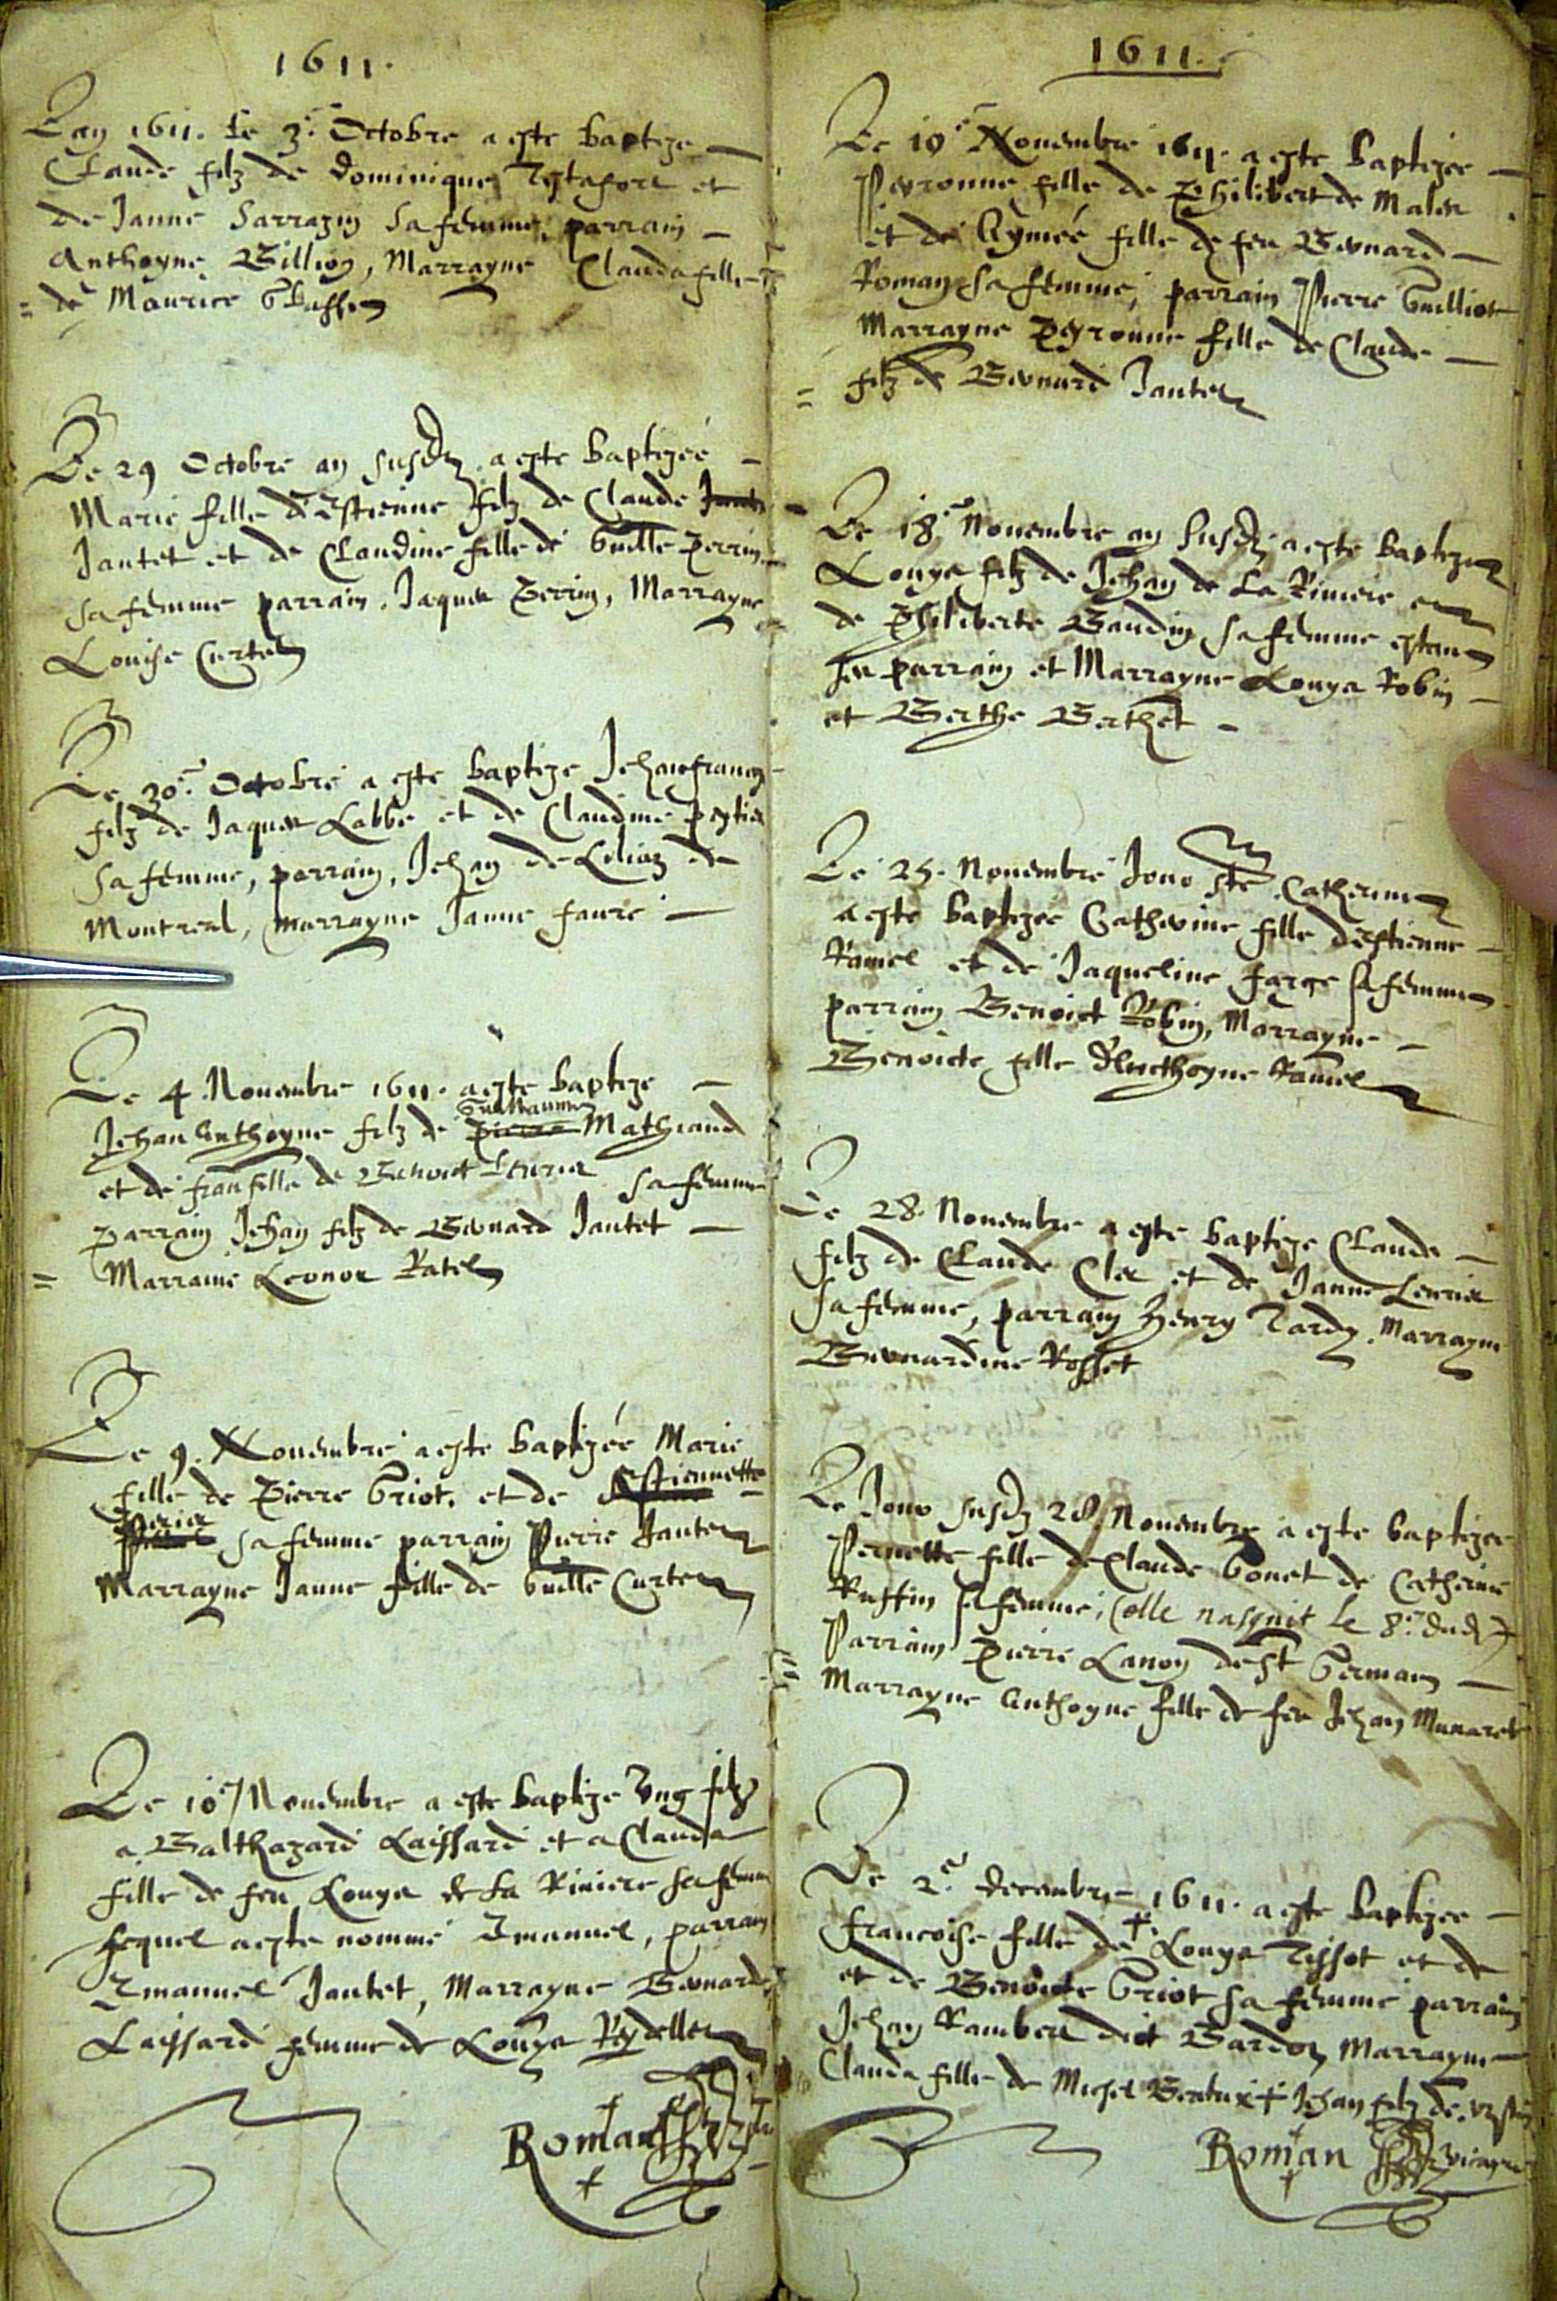 1611.
Lan 1611. Le 3e Octobre a este baptize
Claude filz de Dominique Testafort et
de Janne Sarrazin sa femme, parrain
Anthoyne Billion, Marrayne Clauda fille
de Maurice
Le 29 Octobre an susdz a este baptizeé
Marie fille d'Estienne filz de Claude
Jantet et de Claudine fille de Guille Perrin
sa femme parrain Jaques Perrin, Marrayne
Louise Curtet
Le 30e Octobre a este baptize Jehanfrancoys
filz de Jaques Labbe et de Claudine
sa femme, parrain, Jehan de de
Montreal, marrayne Janne faure
Le 4 Novembre 1611. a este baptize
Guillaume
Jehan Anthoyne filz de Pierre Mathiand
et de fran fille de Benoict sa femme
parrain Jehan filz de Bernard Jantet
Marraine Leonor Ratel
Le 9. Novembre a este baptizée Marie
fille de Pierre Griot, et de Estiennette
Perier sa femme parrain Pierre Jantet
Marrayne Janne fille de Guille Curtet
Le 10e Novembre a este baptize ung filz
a Balthazard Laissard et a Clauda
fille de feu Louys de la Riviere sa femme
lequel a este nommé Emanuel, parrain
Emanuel Jantet, Marrayne Bernarde
Laissard femme de Louys Reydellet
Roman
1611.
Le 10e Novembre 1611. a este baptizée
Peyronne fille de Philibert de Males
et de Aymeé fille de feu Bernard
Roman sa femme, parrain Pierre Guilliot
Marrayne Peyronne fille de Claude
filz de Bernard Jantet
Le 18e Novembre an susdz a este baptize
Louys filz de Jehan de la Riviere et
de Philiberte Baudin sa femme estans
ses parrain et Marrayne Louys Robin
et Berthe Berthet
Le 25. Novembre Jour Ste Catherine
a este baptizée Catherine fille d'Estienne
Ramel et de Jaqueline farge sa femme
parrain Benoict Robin, Marrayne
Benoicte fille d'Anthoyne Ramel
Le 28. Novembre a este baptize Claude
filz de Claude Cler et de Janne
sa femme, parrain Henry Tardy. Marrayne
Bernardine Rosset
Le Jour susdz 28 Novembre a este baptizee
Pernette fille de Claude Gonet de Catherine
Ruffin sa femme, (elle nasquit le 8e dudz)
Parrain Pierre Lanoy de St Germain
Marrayne Anthoyne fille de feu Jehan Munaret
Le 2e decembre 1611. a este baptizee
francoise fille de + Louys Tissot et de
et de Benoicte Griot sa femme parrain
Jehan Rambert dict Bardoz Marrayne
Clauda fille de Michel + Jehan filz de
Roman vicayre